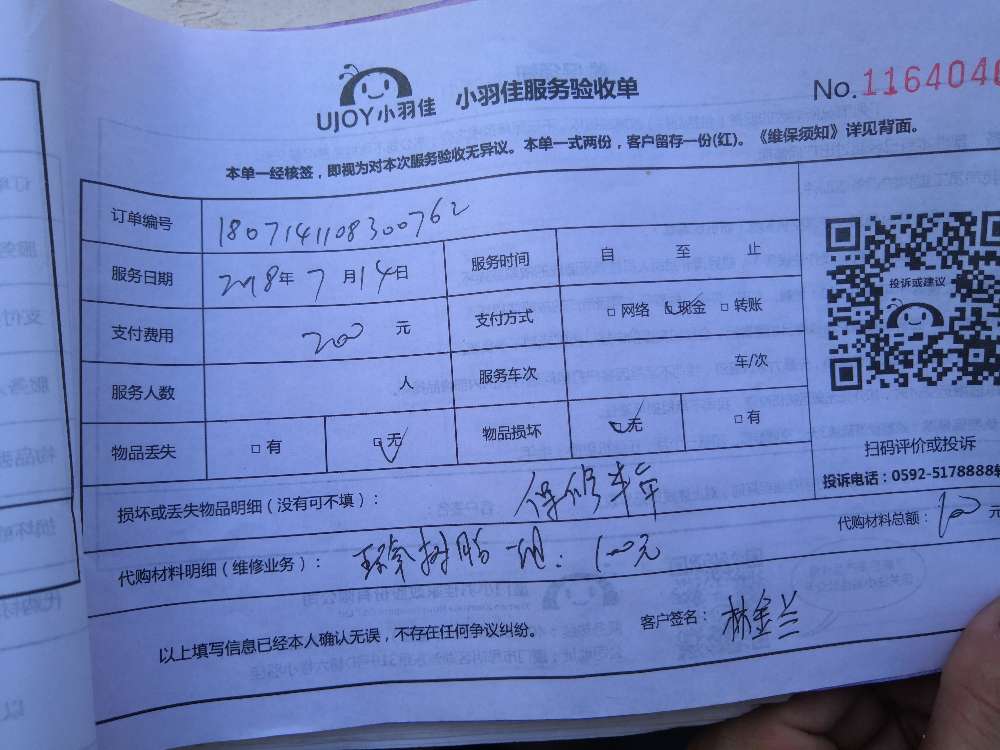 UJOY小羽佳 小羽佳服务验收单 No.1164046
本单一经核签，即视为对本次服务验收无异议。本单一式两份，客户留存一份(红)。《维保须知》详见背面。
订单编号 1807141108300762
服务日期 2018年 7月14日 服务时间 自 至 止
支付费用 200 元 支付方式 □网络 □现金 □转账
服务人数 人 服务车次 车/次
物品丢失 □有 □无 物品损坏 □无 □有
投诉或建议
扫码评价或投诉
投诉电话：0592-5178888转
损坏或丢失物品明细（没有可不填）： 保修半年
代购材料明细（维修业务）： 环氧树脂一组：100元 代购材料总额：100元
以上填写信息已经本人确认无误，不存在任何争议纠纷。 客户签名：林金兰